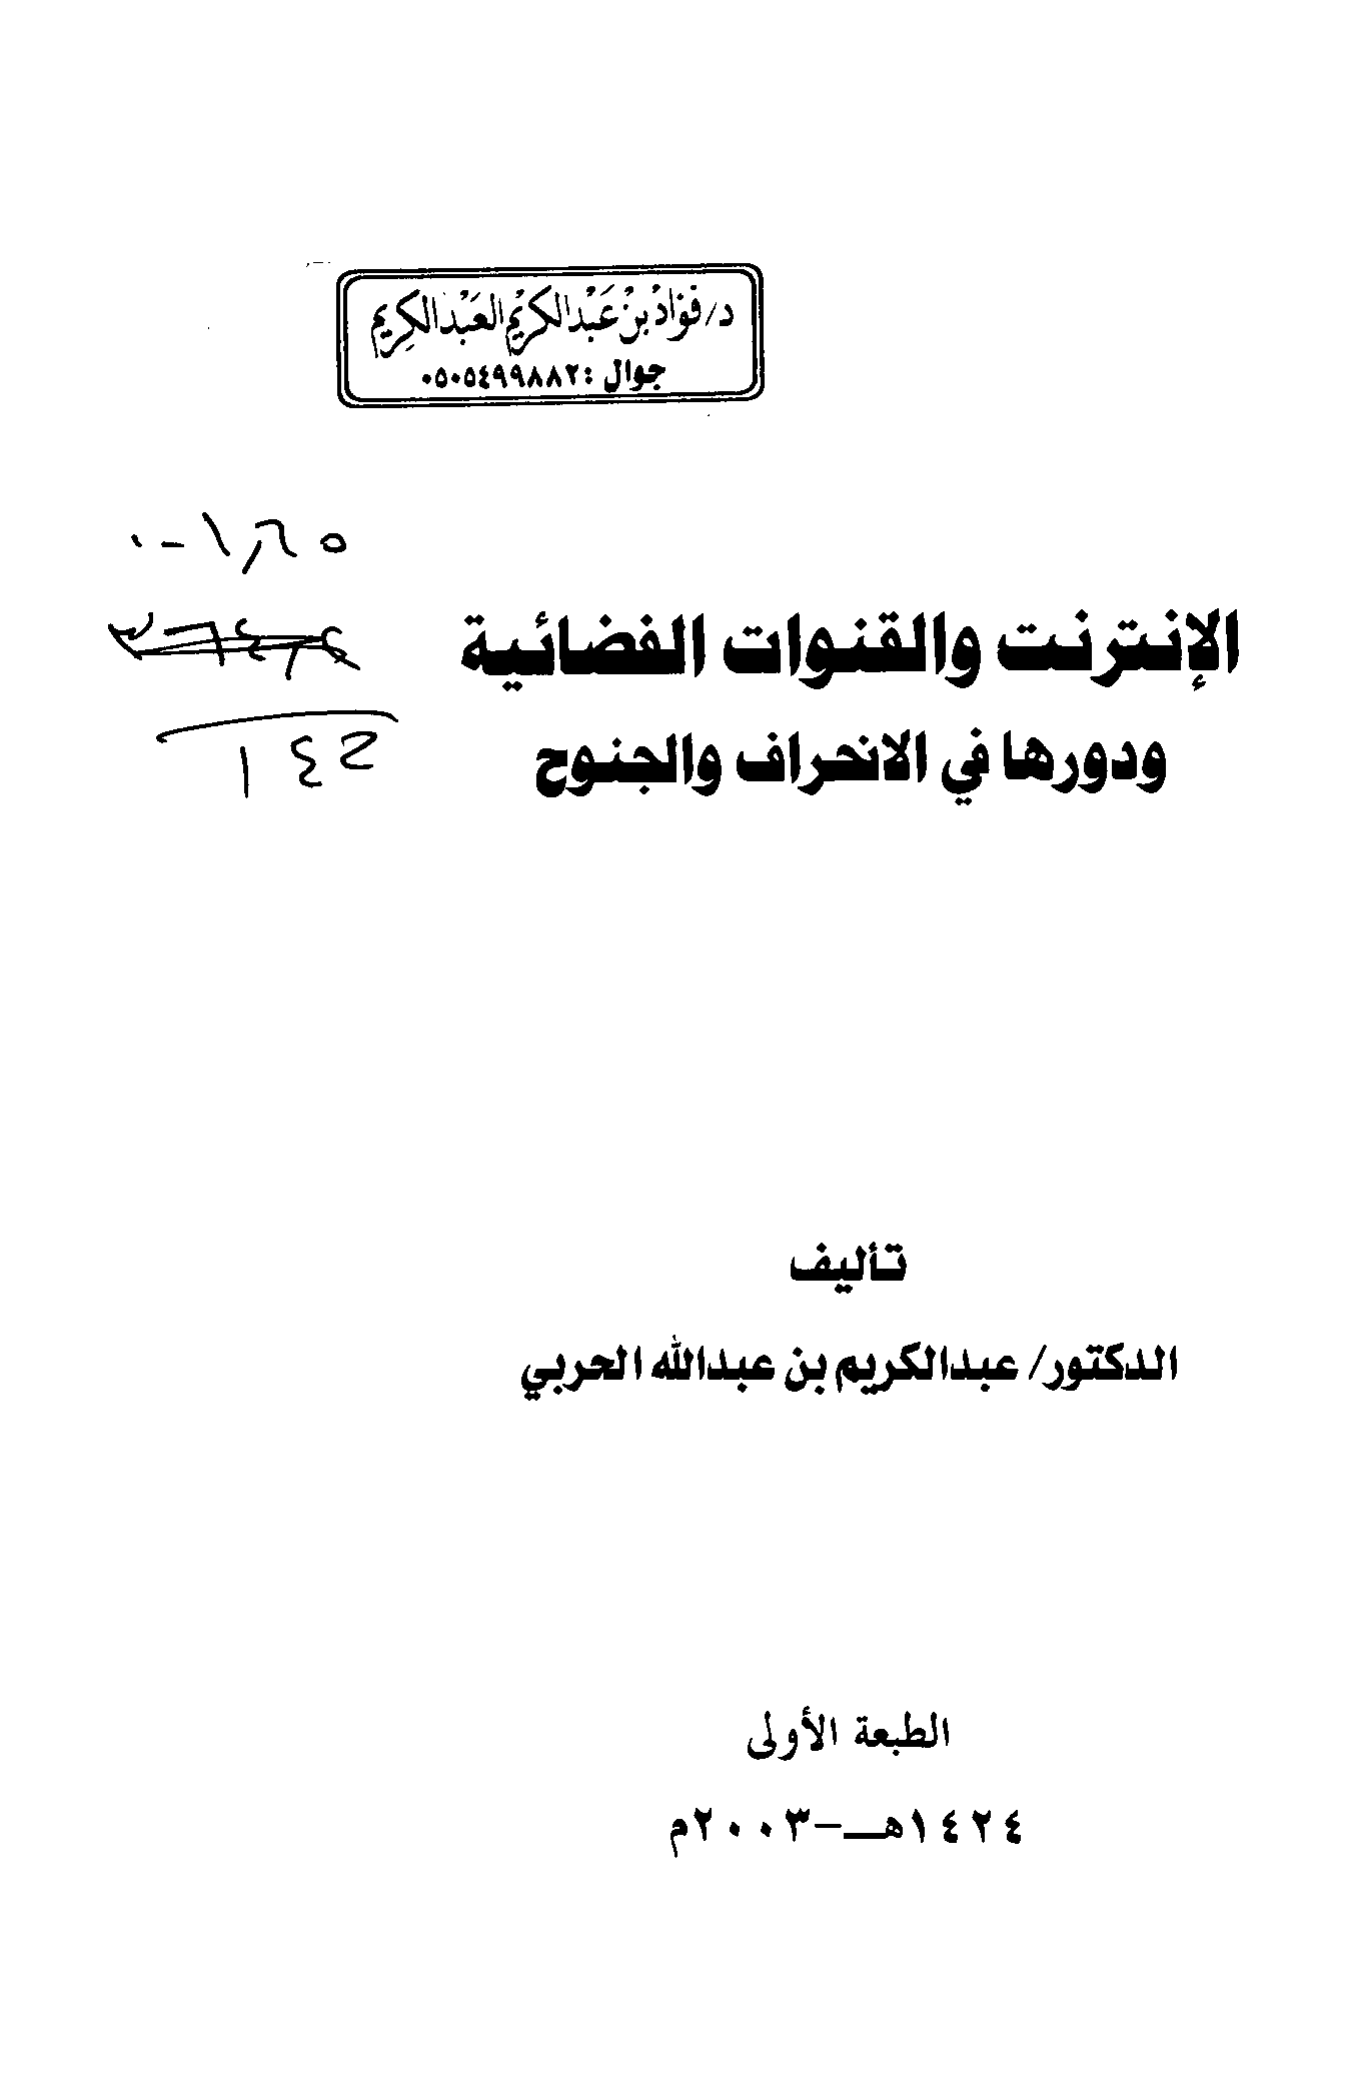 د/ فؤاد بن عبدالكريم العبدالكريم
جوال : ٠٥٠٥٤٩٩٨٨٢
الإنترنت والقنوات الفضائية
ودورها في الانحراف والجنوح
تأليف
الدكتور/ عبدالكريم بن عبدالله الحربي
الطبعة الأولى
١٤٢٤هـ-٢٠٠٣م